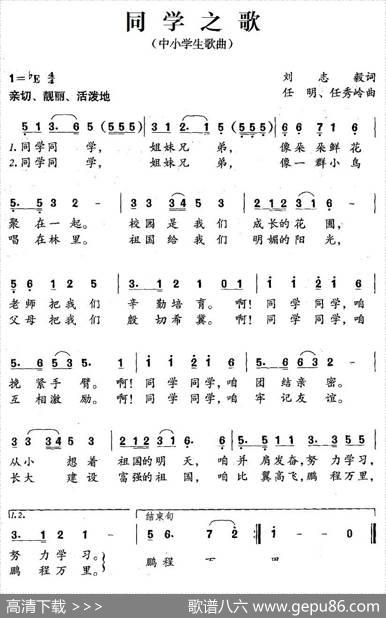 同学之歌
（中小学生歌曲）
1=♭E 4/4
刘志毅词
亲切、靓丽、活泼地
任明、任秀岭曲
5 1 3· 6 5 (555) 3 1 2· 1 5 (555) 6 6 7 1
1.同学同学， 姐妹兄弟， 像朵朵鲜花
2.同学同学， 姐妹兄弟， 像一群小鸟
5· 5 3 2 - 3 3 5 3 4 3 2 1 2 2 3 1 6 -
聚在一起。 校园是我们 成长的花圃，
唱在林里。 祖国给我们 明媚的阳光，
5 6 1 2 5 3· 1 2 1 0 1 i i 2 i 6
老师把我们 辛勤培育。啊！同学同学，咱
父母把我们 殷切希冀。啊！同学同学，咱
5· 6 5 3 5· 1 i i 2 i 6 5· 3 6 5 3 2 -
挽紧手臂。啊！同学同学，咱 团结亲密。
互相激励。啊！同学同学，咱 牢记友谊。
3 3 3 4 5 3 2 1 2 3 1 6· 6 5· 5 1· 3 3 5 5 5
从小想着 祖国的明天，咱并肩发奋，努力学习，
长大建设 富强的祖国，咱比翼高飞，鹏程万里，
1.2.
结束句
3· 2 1 - 5 6 7 2 - i - i 0
努力学习。
鹏程万里。
鹏程万里
高清下载 >>>
歌谱八六 www.gepu86.com